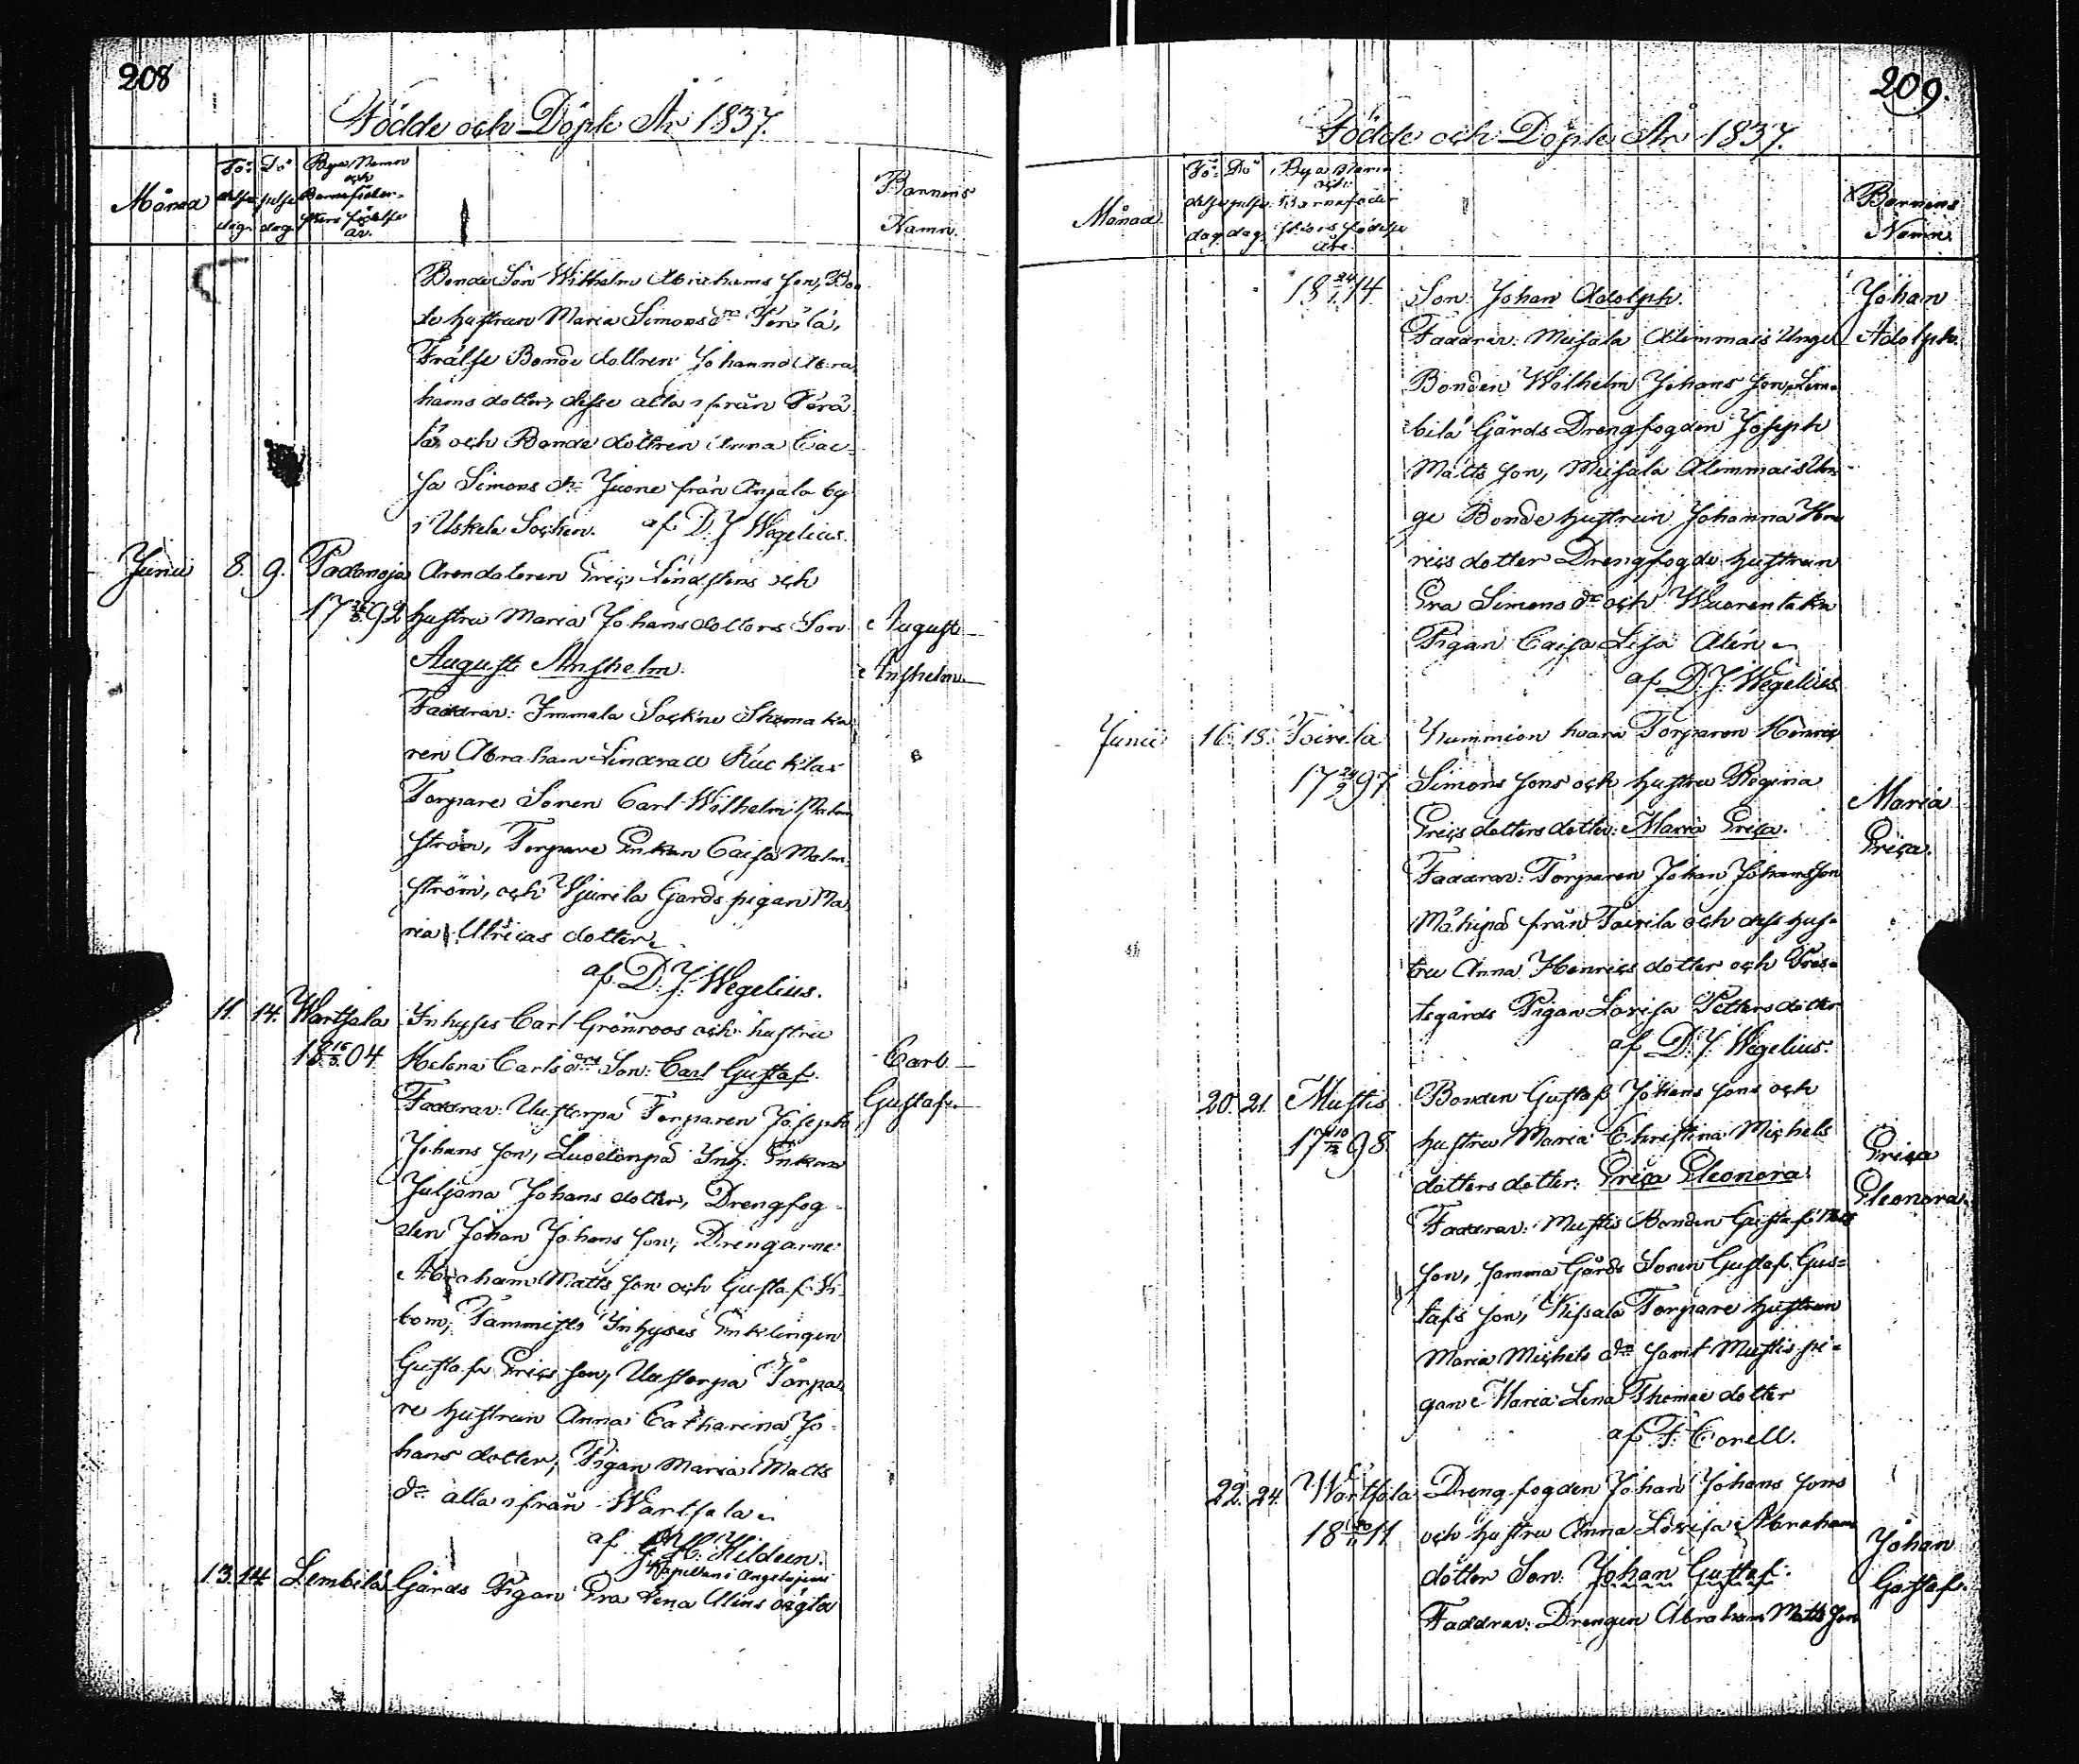 208
Födde och Döpte År 1837.
Månad
Fö= Dö Bya Namn
och
delse pelse Barnaföder-
dag. dag. skors födelse
år.
Barnens
Namn.
Bonde Son Wilhelm Abrahams son, Bon
de hustrun Maria Simons dr
Frälse Bonde dottren Johanna Abra
hams dotter, desse alla ifrån
la och Bonde dottren Anna Cai
sa Simons dr Juone från Anjala by
i Uskela Socken. af D. J. Wegelius.
Junii 8. 9. Padanoja Arendatoren Erics Lindstens och
17 92 hustru Maria Johans dotters Son August
August Anshelm. Anshelm
Faddrar: Immala Sockne Skoma ka
ren Abraham Lindrall Kucklas
Torpare Sonen Carl Wilhelm Malm
ström, Torpare Enkan Caisa Malm
ström, och Njurila Gårds pigan Ma
ria Ulricas dotter
af D. J. Wegelius.
11. 14. Wartsala Inhyses Carl Grönroos och hustru
18 04 Helena Carls dr Son: Carl Gustaf. Carl
Faddrar: Uustorpa Torparen Joseph Gustaf.
Johans son, Inh: Enkan
Juljana Johans dotter, Drengfog
den Johan Johans son, Drengarne
Abraham Matts son och Gustaf Wi
bom, Tammisto Inhyses Enklingen
Gustaf Erics son, Uustorpa Torpa
re hustrun Anna Catharina Jo
hans dotter, Pigan Maria Matts
dr alla ifrån Wartsala
af G. H. Hildeen.
Kapellan i Angelniemi
13. 14. Lembilä Gårds Pigan Eva Lena Alins oägta
209.
Födde och Döpte År 1837.
Månad
Fö= Dö Bya Namn
och
delse pelse Barnaföder
dag. dag. skors födelse
åhr.
Barnens
Namn.
18 24/1 14. Son: Johan Adolph. Johan
Faddrar: Meisala Alimmais Unge Adolph.
Bonden Wilhelm Johans son, Lem=
bilä Gårds Drengfogden Joseph
Matts son, Meisala Alimmais Un
ge Bonde hustrun Johanna Hen
rics dotter Drengfogde hustrun
Eva Simons dr och Wuorentaka
Pigan Caisa Lisa Alin
af D. J. Wegelius.
Junii 16. 18. Toirila Hummion haara Torparen Henric
17 97 Simons sons och hustru Regina Maria
Erics dotters dotter: Maria Erica. Erica.
Faddrar: Torparen Johan Johansson
Mäkipä från Toirila och dess hus=
tru Anna Henrics dotter och Pres=
tegårds Pigan Lovisa Petters dotter
af D. J. Wegelius.
20. 21. Mustis Bonden Gustaf Johans sons och
17 98. hustru Maria Christina Michels Erica
dotters dotter: Erica Eleonora. Eleonora.
Faddrar: Mustis Bonden Gustaf Matts
son, samma Gårds Sonen Gustaf Gus=
tafs son, Kissala Torpare hustrun
Maria Michels dr samt Mustis pi=
gan Maria Lena Thomae dotter
af F. Corell.
22. 24. Wartsala Drengfogden Johan Johans sons
18 11 och hustru Anna Lovisa Abrahams Johan
dotter Son: Johan Gustaf. Gustaf.
Faddrar: Drengen Abraham Matts son